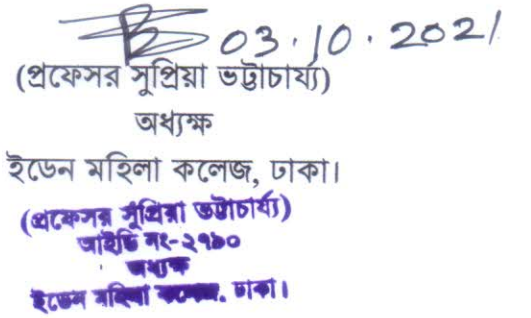 03.10.2021
(প্রফেসর সুপ্রিয়া ভট্টাচার্য্য)
অধ্যক্ষ
ইডেন মহিলা কলেজ, ঢাকা।
(প্রফেসর সুপ্রিয়া ভট্টাচার্য্য)
আইডি নং-২৭৯০
অধ্যক্ষ
ইডেন মহিলা কলেজ, ঢাকা।